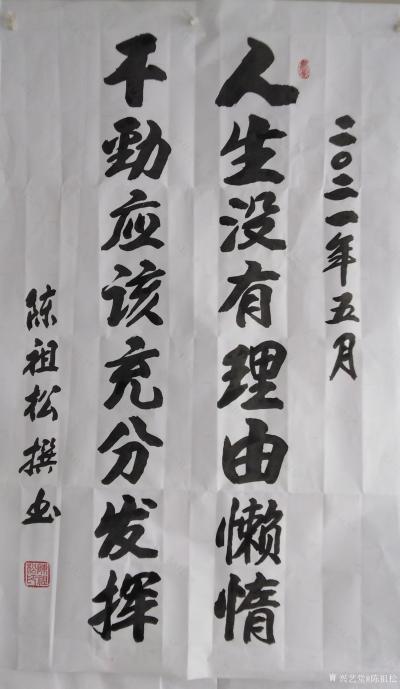 二〇二一年五月
人生没有理由懒惰
干勁应该充分发挥
陈祖松撰书
兴艺堂@陈祖松